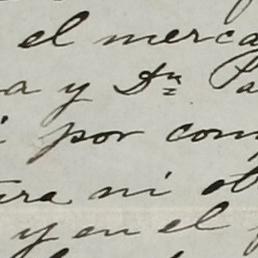 el merca
a y Dn Pa
i por com
ura ni ot
y en el